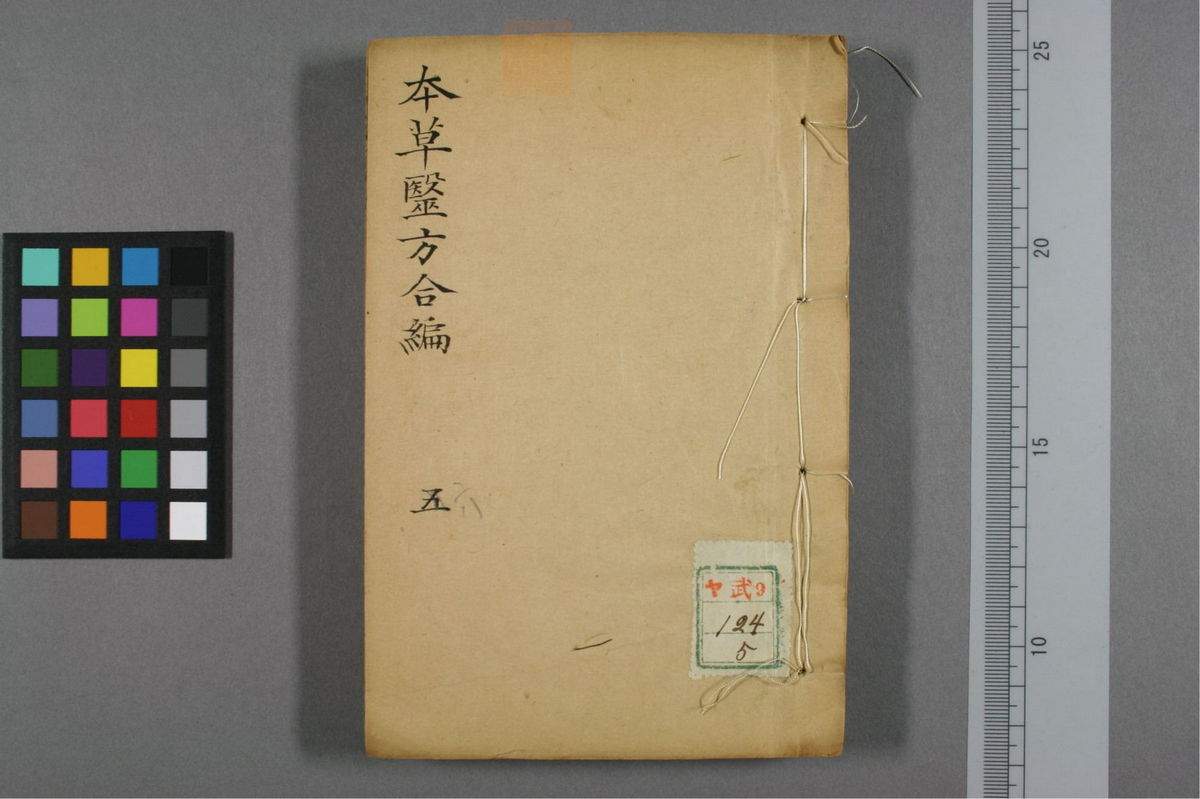 本草毉方合編
五
ヤ 武9
124
5
25
20
15
10